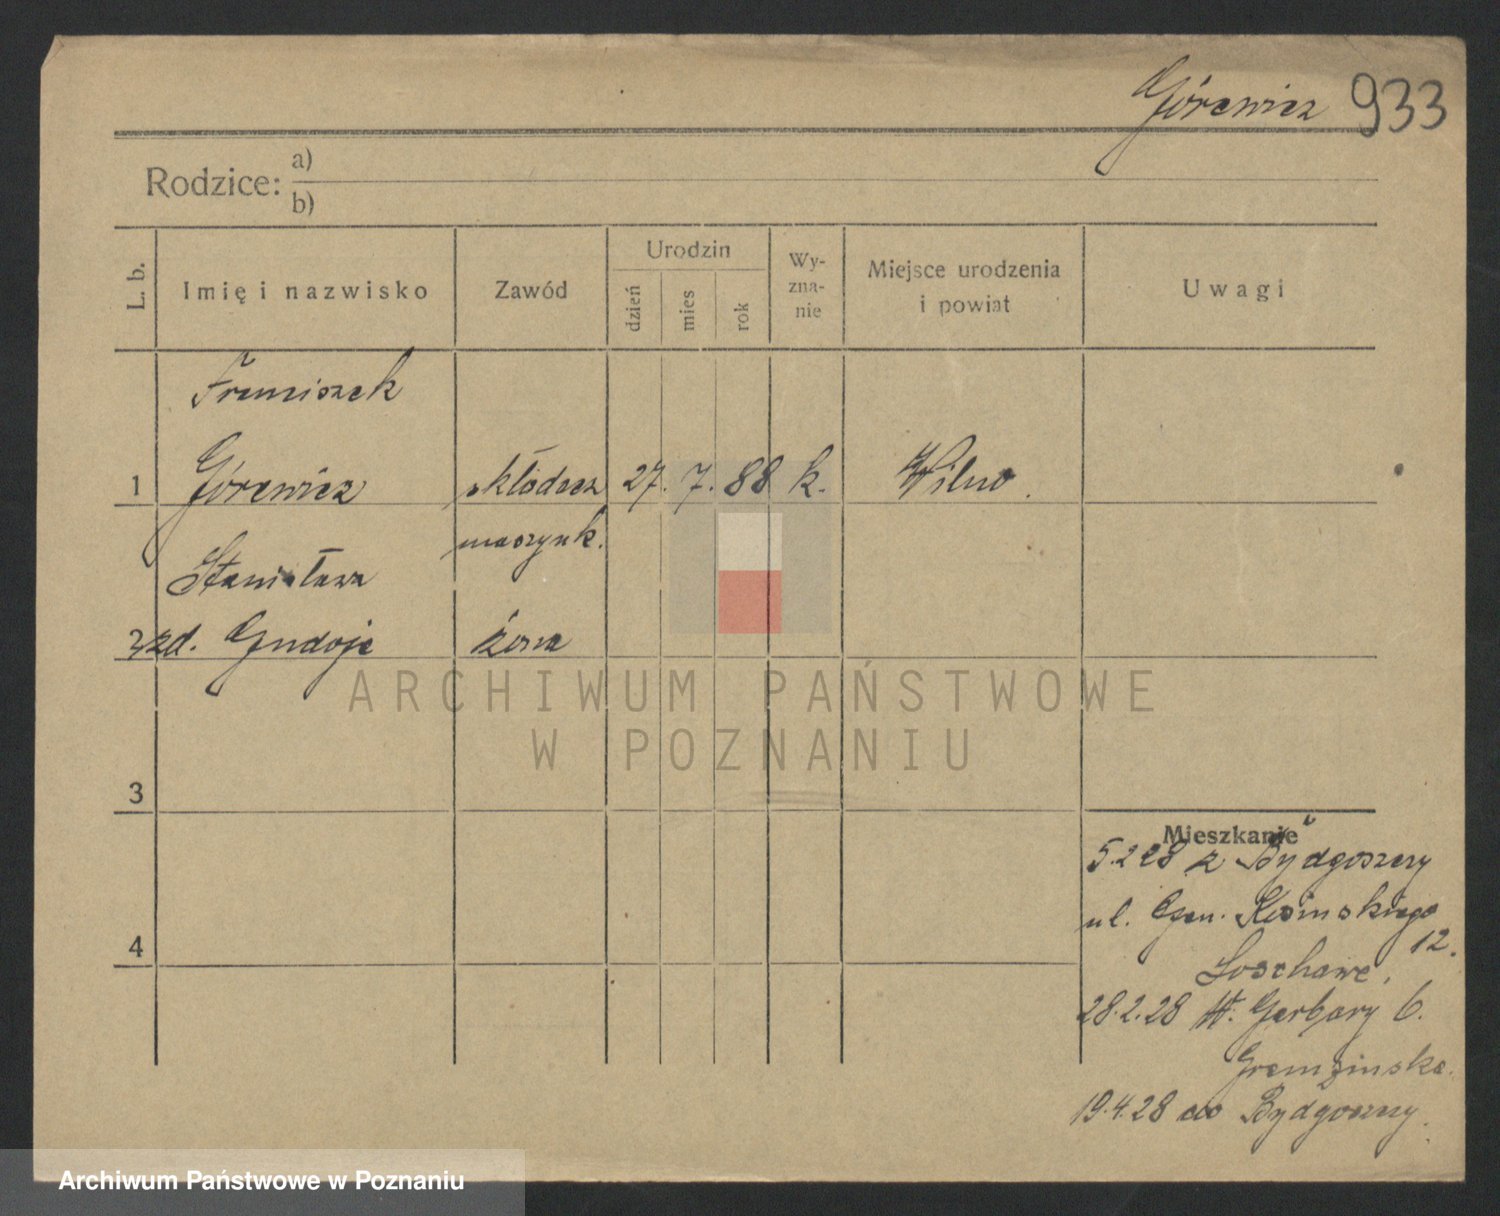 Górewicz 933
Rodzice: a)
b)
L. b. Imię i nazwisko Zawód Urodzin dzień mies rok Wy-zna-nie Miejsce urodzenia i powiat Uwagi
Franciszek
1 Górewicz składacz 27. 7. 88 k. Wilno.
maszynk.
Stanisława
2 zd. Gudoje żona
ARCHIWUM PAŃSTWOWE
W POZNANIU
3
Mieszkanie
5.2 28 z Bydgoszczy
4
ul. Gen.
12.
28.2.28 W. Garbary 6.
19.4.28 do Bydgoszczy.
Archiwum Państwowe w Poznaniu